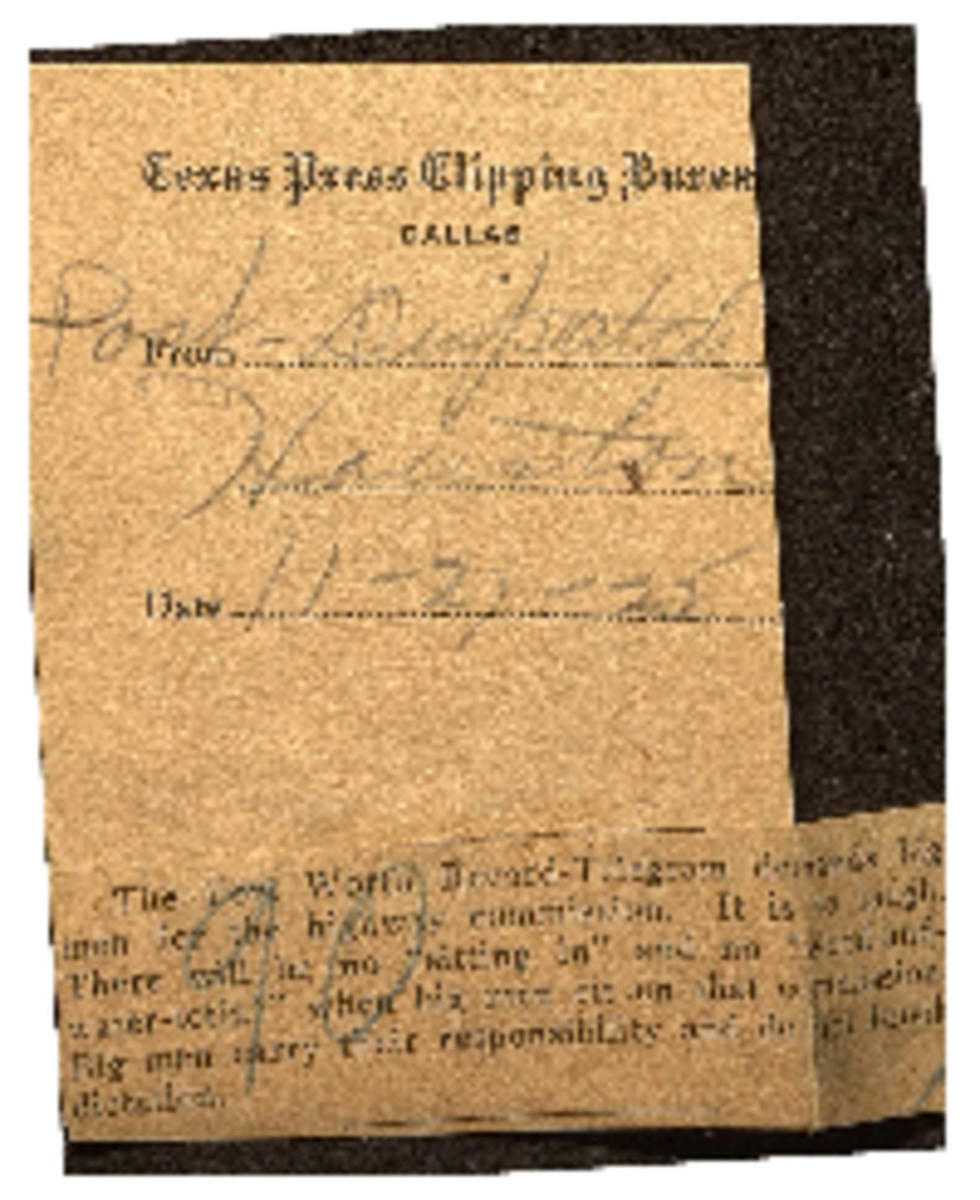 Texas Press Clipping Bureau
DALLAS
From Post-Dispatch
Houston
Date 11-27-25
90
The Fort Worth Record-Telegram demands big
men for the highway commission. It is so nigh.
There will be no "sitting in" and no
when big men sit on that commission.
Big men carry their responsibility and do not
dictation.